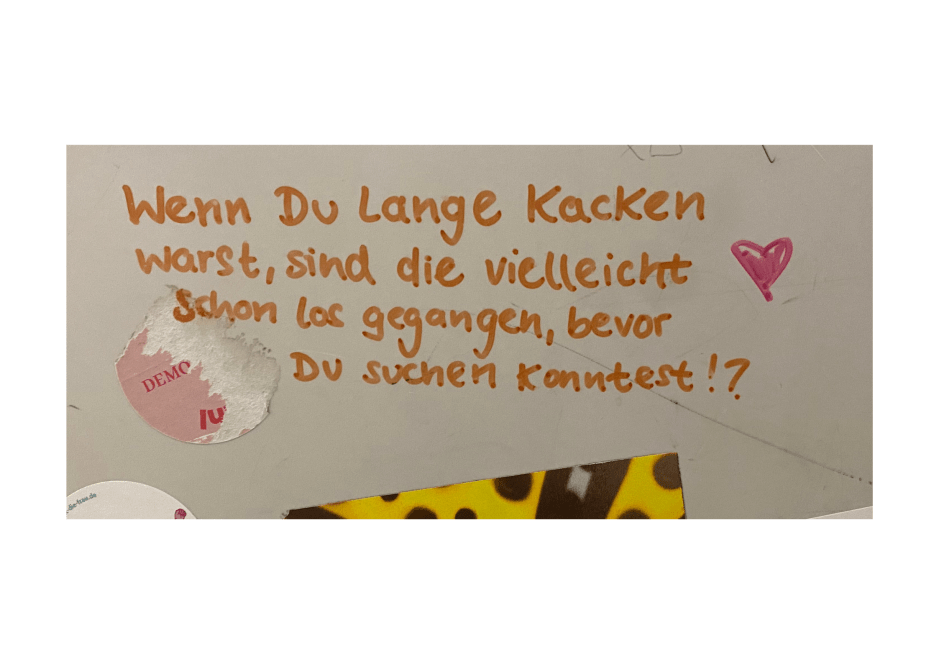 Wenn Du Lange Kacken
warst, sind die vielleicht
schon los gegangen, bevor
Du suchen konntest!?
DEMO